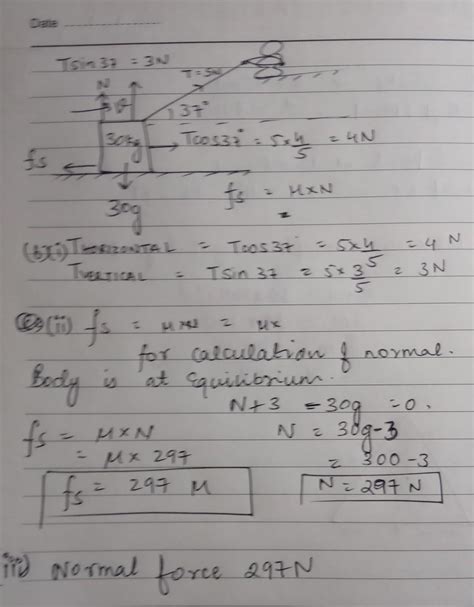 Date
Tsin37 = 3N
T=5N
N
37°
30kg
Tcos37° = 5×4/5 = 4N
fs
fs = μ×N
30g
(b)(i) THORIZONTAL = Tcos37 = 5×4/5 = 4N
TVERTICAL = Tsin37 = 5×3/5 = 3N
(ii) fs = μ×N = μ×
for calculation of normal.
Body is at Equilibrium.
N+3 -30g =0.
fs = μ×N
N = 30g-3
= μ×297
= 300-3
fs = 297 μ
N = 297N
iii) Normal force 297N